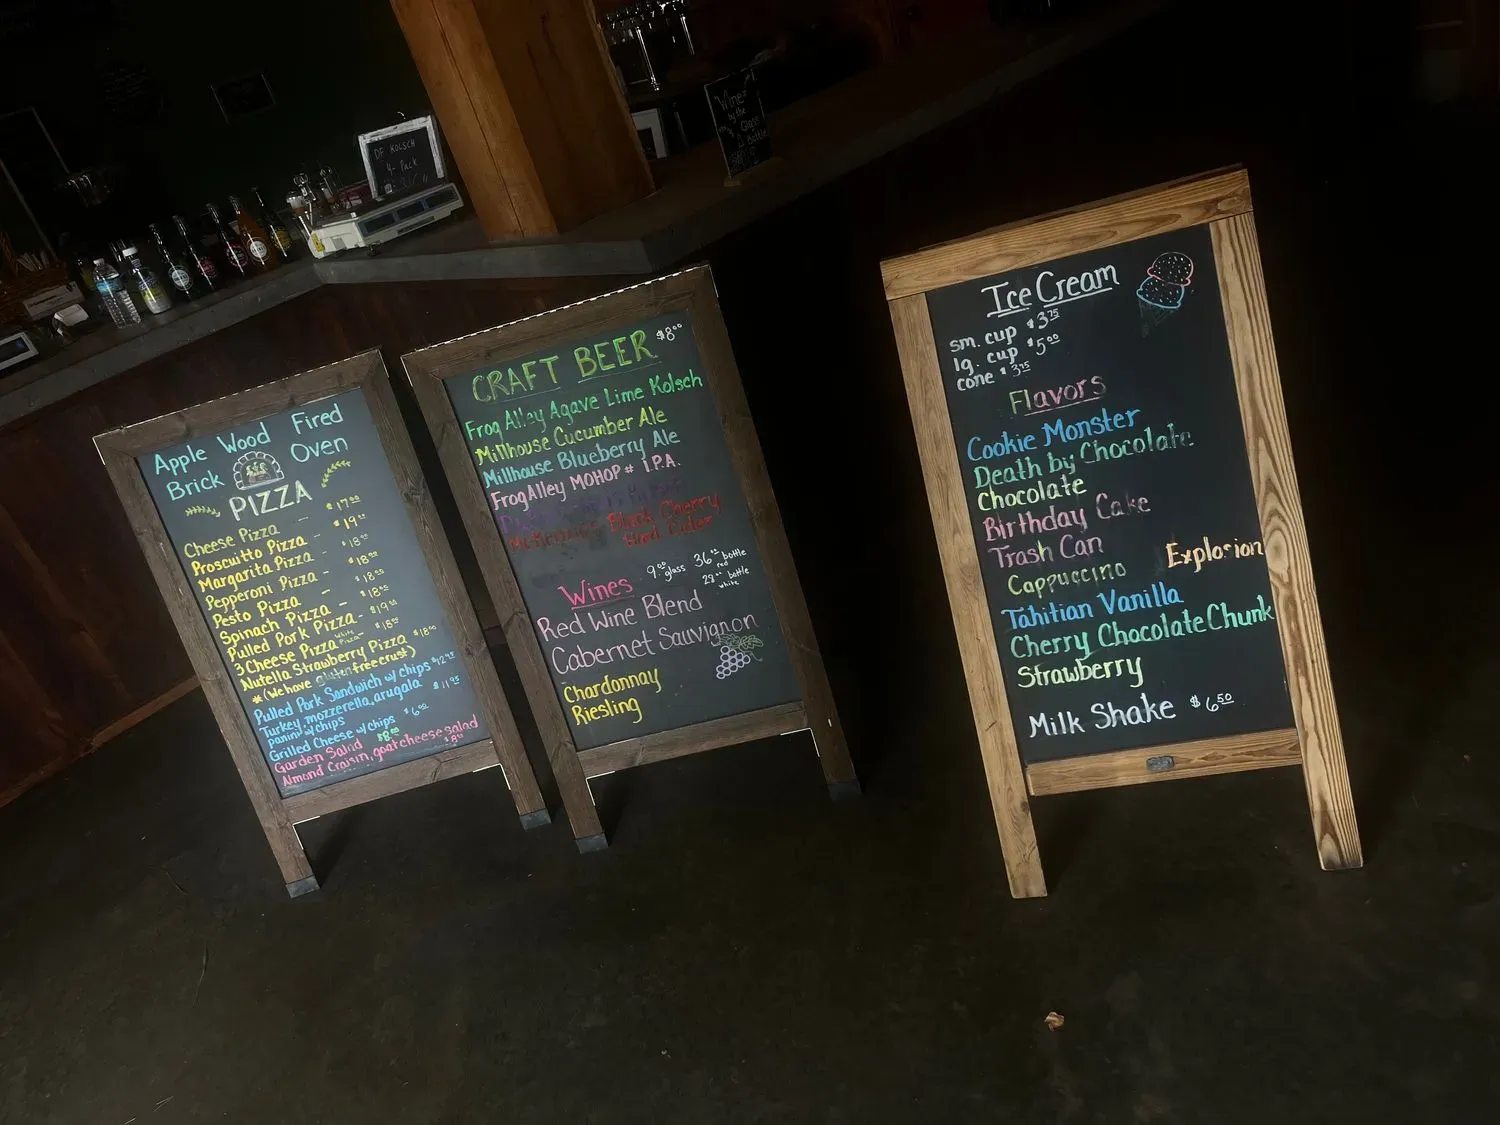 DF KOLSCH
4-Pack
Wine
by the
Glass
Bottle
Apple Wood Fired
Brick Oven
PIZZA
Cheese Pizza — $17.00
Prosciutto Pizza - $19.00
Margarita Pizza - $18.00
Pepperoni Pizza - $18.00
Pesto Pizza - $18.00
Spinach Pizza - $18.00
Pulled Pork Pizza - $19.00
3 Cheese Pizza White Pizza - $18.00
Nutella Strawberry Pizza $18.00
*(We have gluten free crust)
Pulled Pork Sandwich w/ chips $12.95
Turkey, mozzerella, arugala $11.95
panini w/ chips
Grilled Cheese w/ chips $6.00
Garden Salad $8.00
Almond Craisin, goat cheese salad
CRAFT BEER $8.00
Frog Alley Agave Lime Kolsch
Millhouse Cucumber Ale
Millhouse Blueberry Ale
FrogAlley MOHOP# I.P.A.
McKenzies Black Cherry
Hard Cider
Wines 9.00 glass 36.00 bottle red
bottle white
Red Wine Blend
Cabernet Sauvignon
Chardonnay
Riesling
Ice Cream
sm. cup $3.75
lg. cup $5.00
cone $3.75
Flavors
Cookie Monster
Death by Chocolate
Chocolate
Birthday Cake
Trash Can
Cappuccino Explosion
Tahitian Vanilla
Cherry Chocolate Chunk
Strawberry
Milk Shake $6.50